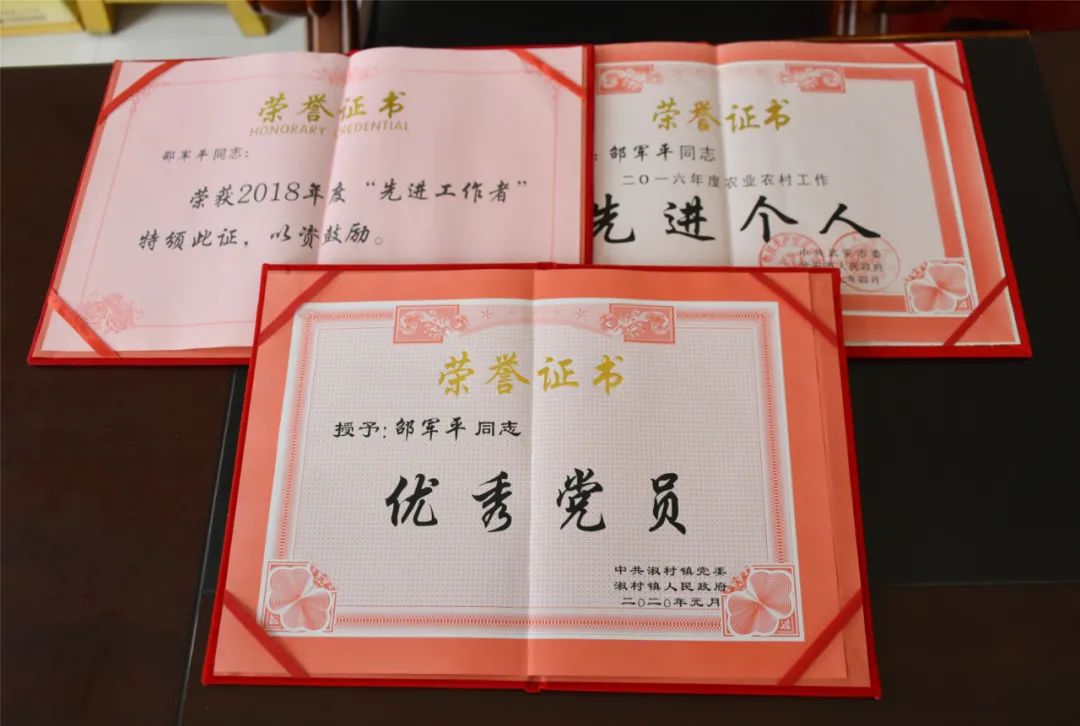 荣誉证书
HONORARY CREDENTIAL
邵军平同志:
荣获2018年度“先进工作者”
特颁此证，以资鼓励。
荣誉证书
: 邵军平同志
二〇一六年度农业农村工作
先进个人
中共武安市委
人民政府
年四月
荣誉证书
授予:邵军平同志
优秀党员
中共淑村镇党委
淑村镇人民政府
二〇二〇年元月